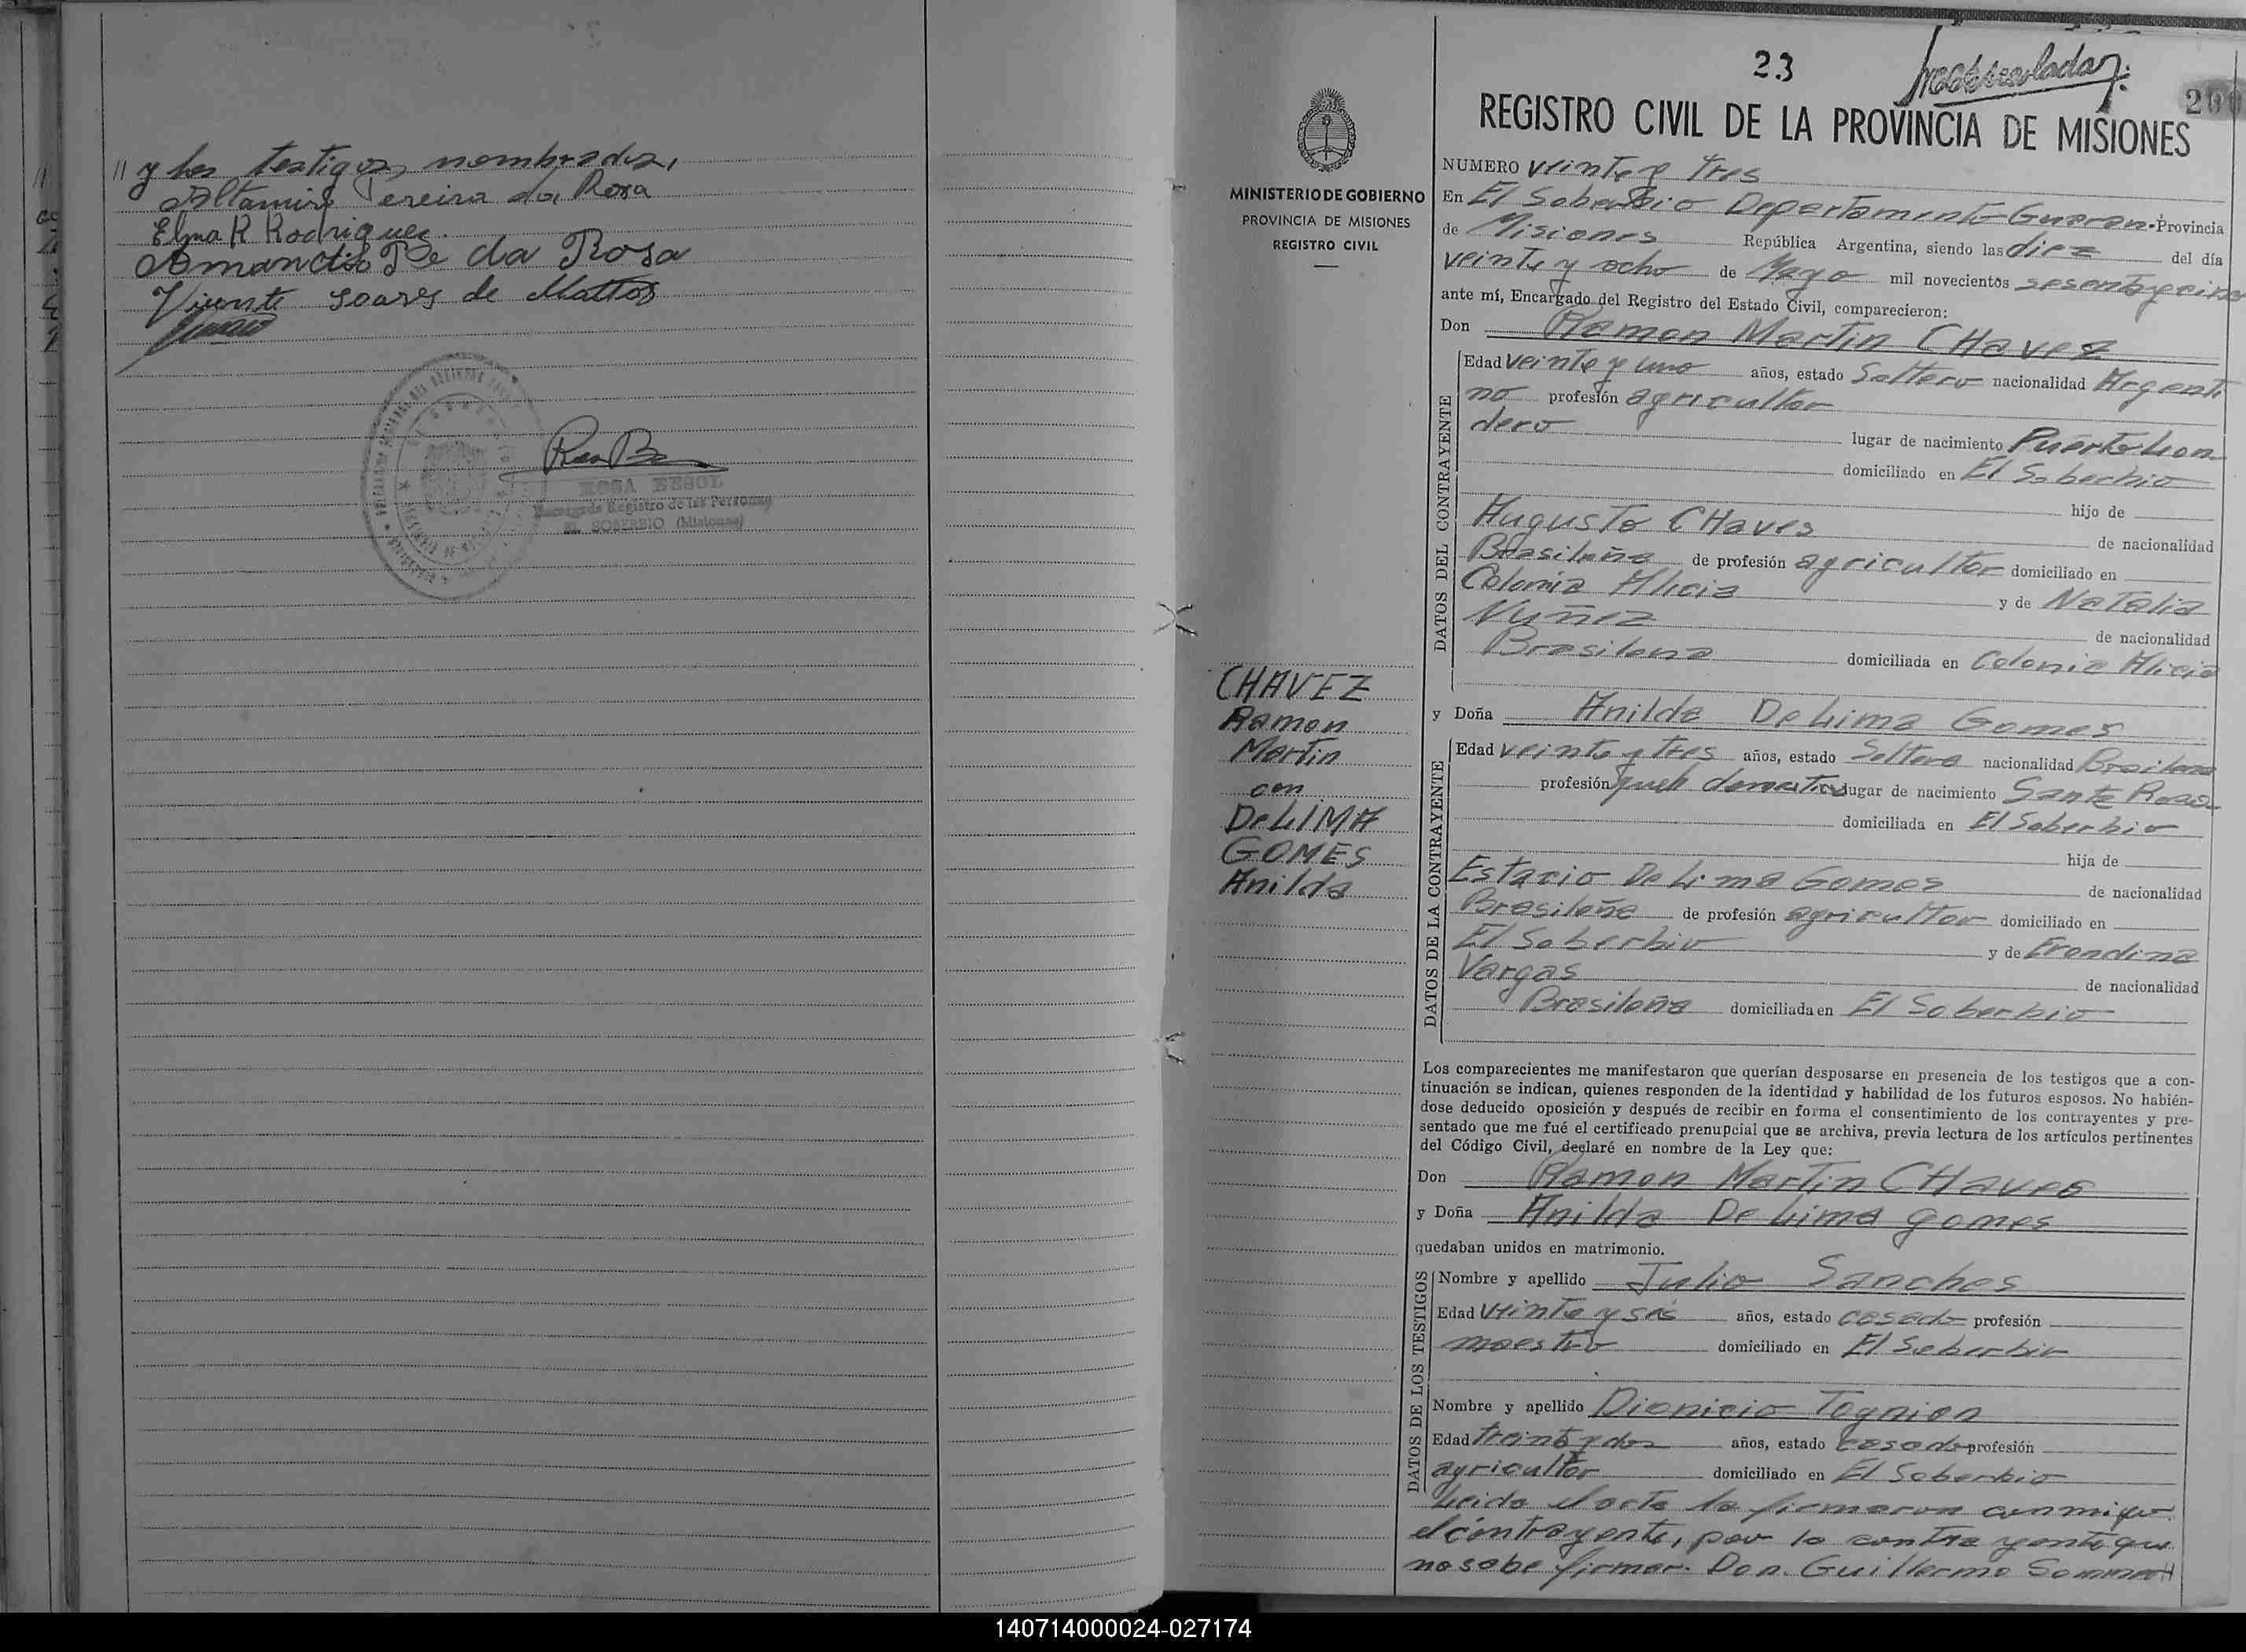 // y los testigos nombrados,
Altamiro Pereira da Rosa
Elma R Rodriguez.
Amancio Pe da Rosa
Vicente soares de Mattos
ROSA BESOL
Encargada Registro de las Personas
EL SOBERBIO (Misiones)
MINISTERIO DE GOBIERNO
PROVINCIA DE MISIONES
REGISTRO CIVIL
CHAVEZ
Ramon
Martin
con
De LIMA
GOMES
Anilda
23
200
REGISTRO CIVIL DE LA PROVINCIA DE MISIONES
NUMERO veinte y tres
En El Soberbio Departamento Guarani Provincia
de Misiones República Argentina, siendo las diez del día
veinte y ocho de Mayo mil novecientos sesenta y cinco
ante mí, Encargado del Registro del Estado Civil, comparecieron:
Don Ramon Martin CHavez
DATOS DEL CONTRAYENTE
Edad veinte y uno años, estado Soltero nacionalidad Argenti
no profesión agricultor
dero lugar de nacimiento Puerto Lean
domiciliado en El Soberbio
hijo de
Augusto CHaves de nacionalidad
Brasileña de profesión agricultor domiciliado en
Colonia Alicia y de Natalia
Nuñez de nacionalidad
Brasilena domiciliada en Colonia Alicia
y Doña Anilda De Lima Gomes
DATOS DE LA CONTRAYENTE
Edad veinte y tres años, estado Soltera nacionalidad Brasilena
profesión queh domestico lugar de nacimiento Santa Rosa
domiciliada en El Soberbio
hija de
Estacio De Lima Gomes de nacionalidad
Brasileña de profesión agricultor domiciliado en
El Soberbio y de Erondina
Vargas de nacionalidad
Brasileña domiciliada en El Soberbio
Los comparecientes me manifestaron que querían desposarse en presencia de los testigos que a con-
tinuación se indican, quienes responden de la identidad y habilidad de los futuros esposos. No habién-
dose deducido oposición y después de recibir en forma el consentimiento de los contrayentes y pre-
sentado que me fué el certificado prenupcial que se archiva, previa lectura de los artículos pertinentes
del Código Civil, declaré en nombre de la Ley que:
Don Ramon Martin CHaves
y Doña Anilda De Lima gomes
quedaban unidos en matrimonio.
DATOS DE LOS TESTIGOS
Nombre y apellido Julio Sanches
Edad veinte y seis años, estado casado profesión
maestro domiciliado en El Soberbio
Nombre y apellido Dionicio Tognion
Edad treinta y dos años, estado casado profesión
agricultor domiciliado en El Soberbio
Leida el acta la firmaron conmigo
el contrayente, por la contrayente que
no sabe firmar. Don. Guillermo Sommer //
140714000024-027174